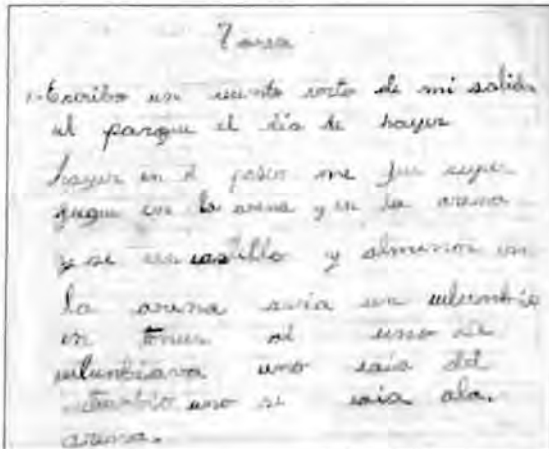 Tarea
1.-Escribo un cuento corto de mi salida
al parque el día de hayer
hayer en el paseo me fue super
gugue en la arena y en la arena
y se un castillo y almenos en
la arena avia un culumbio
en tonces al uno se
culunbiava uno caia del
culunbio uno se caia ala
arena.